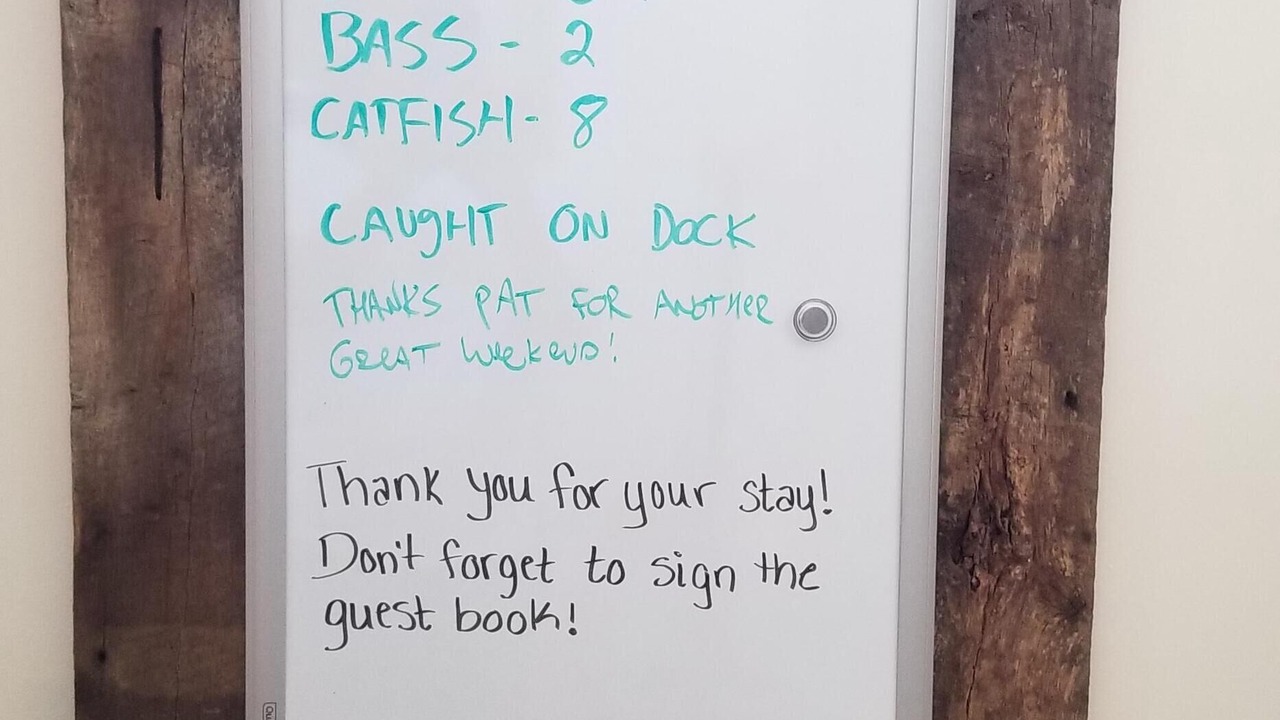 BASS - 2
CATFISH - 8
CAUGHT ON DOCK
THANKS PAT FOR ANOTHER
GREAT WEEKEND!
Thank you for your stay!
Don't forget to sign the
guest book!